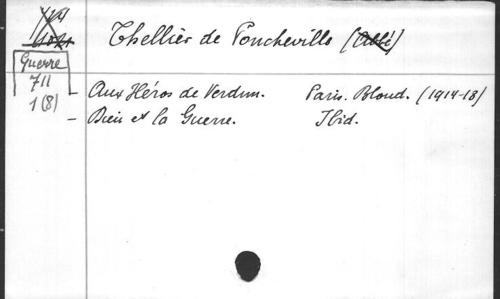 Thellier de Poncheville (Abbé)
Guerre
711
1(8)
- Aux Héros de Verdun. Paris. Bloud. (1914-18)
- Dieu et la Guerre. Ibid.